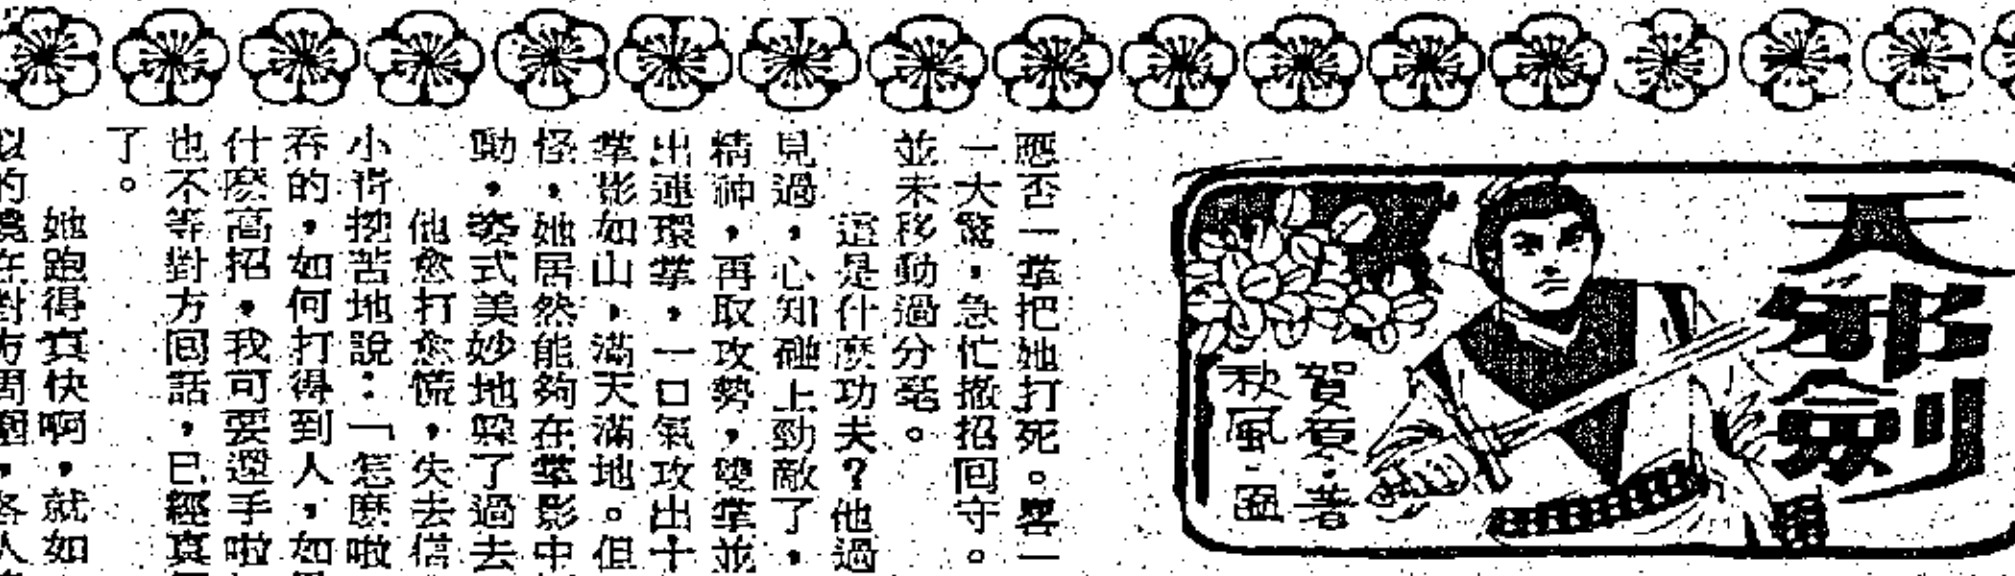 天邪劍
賀夏·著
秋風·圖
應否一掌把她打死。畧一
一大驚,急忙撤招回守。
並未移動過分毫。
這是什麼功夫?他過
見過,心知碰上勁敵了,
精神,再取攻勢,雙掌並
出連環掌,一口氣攻出十
掌影如山,滿天滿地。但
怪,她居然能夠在掌影中
動,姿式美妙地躱了過去
他愈打愈慌,失去信
小青挖苦地說:「怎麽啦
吞的,如何打得到人,如
什麽高招,我可要還手啦
也不等對方回話,已經真
了。
她跑得真快啊,就如
似的繞在對方周圍,各人